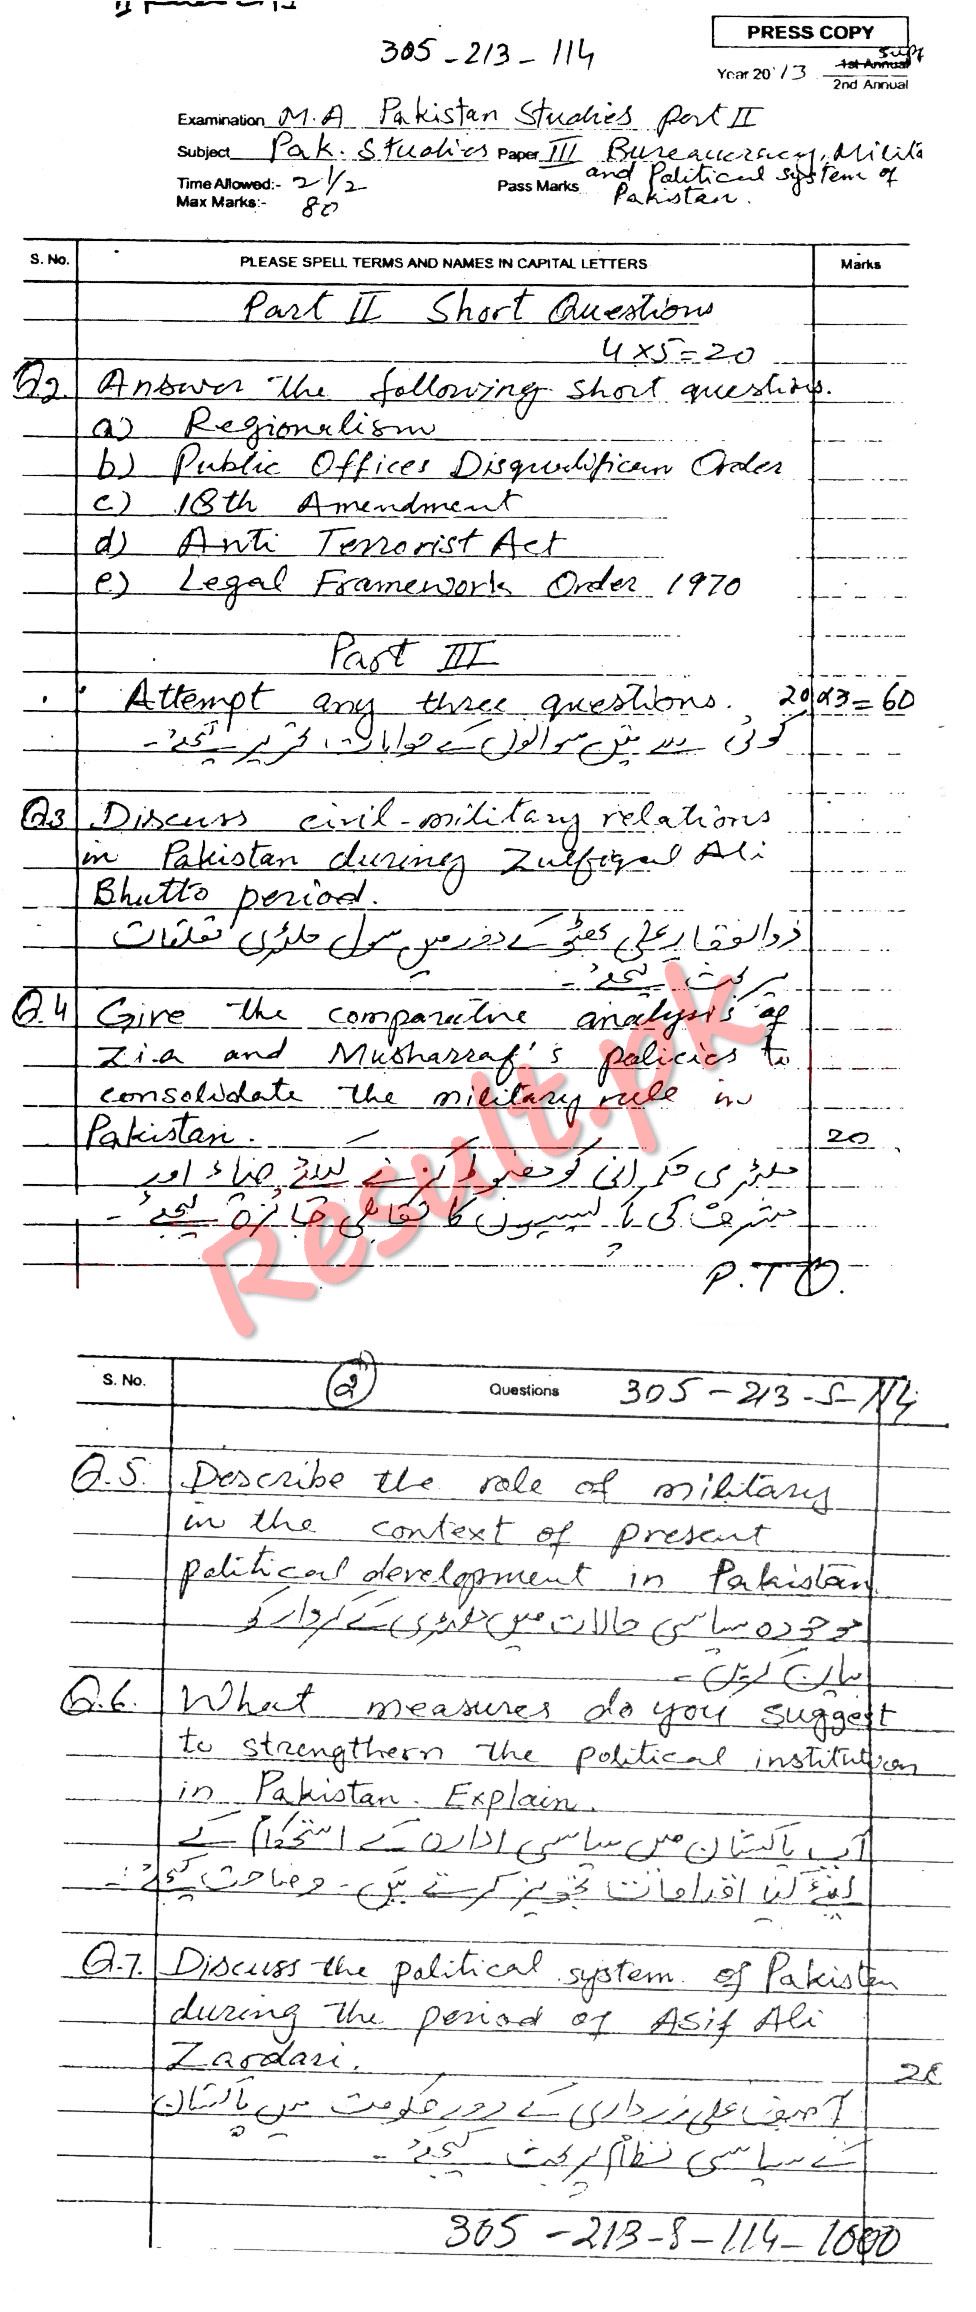 305-213-114
PRESS COPY
Year 2013 1st Annual Supp
2nd Annual
Examination M.A Pakistan Studies Part II
Subject Pak. Studies Paper III Bureaucracy, Milita
and Political system of
Pakistan.
Time Allowed:- 2 1/2 Pass Marks
Max Marks:- 80
S. No. PLEASE SPELL TERMS AND NAMES IN CAPITAL LETTERS Marks
Part II Short Questions
4x5=20
Q2. Answer the following short questions.
a) Regionalism
b) Public Offices Disqualification Order
c) 18th Amendment
d) Anti Terrorist Act
e) Legal Framework Order 1970
Part III
Attempt any three questions. 20x3=60
کوئی سے تین سوالوں کے جوابات تحریر کیجئے۔
Q3 Discuss civil-military relations
in Pakistan during Zulfiqal Ali
Bhutto period.
ذوالفقار علی بھٹو کے دور میں سول ملٹری تعلقات
پر بحث کیجئے۔
Q.4 Give the comparative analysis of
Zia and Musharraf's policies to
consolidate the military rule in
Pakistan. 20
ملٹری حکمرانی کو مضبوط کرنے کیلئے ضیاء اور
مشرف کی پالیسیوں کا تقابلی جائزہ لیجئے۔
P.T.O.
Result.pk
S. No. (2) Questions 305-213-S-114
Q.5. Describe the role of military
in the context of present
political development in Pakistan.
موجودہ سیاسی حالات میں ملٹری کے کردار کو
بیان کریں۔
Q.6. What measures do you suggest
to strengthern the political institution
in Pakistan. Explain.
آپ پاکستان میں سیاسی ادارہ کے استحکام کے
لیئے کیا اقدامات تجویز کرتے ہیں۔ وضاحت کیجئے۔
Q.7. Discuss the political system of Pakistan
during the period of Asif Ali
Zardari.
آصف علی زرداری کے دور حکومت میں پاکستان
کے سیاسی نظام پر بحث کیجئے۔
305-213-S-114-1000